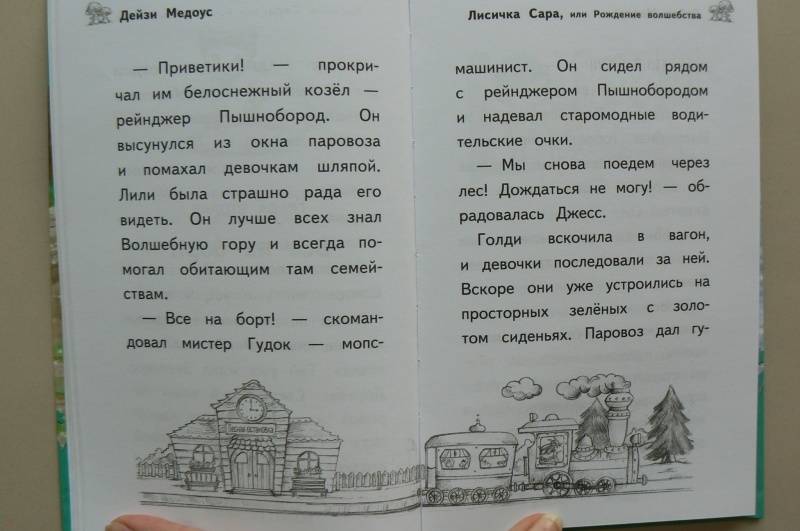 Дейзи Медоус
— Приветики! — прокри-
чал им белоснежный козёл —
рейнджер Пышнобород. Он
высунулся из окна паровоза
и помахал девочкам шляпой.
Лили была страшно рада его
видеть. Он лучше всех знал
Волшебную гору и всегда по-
могал обитающим там семей-
ствам.
— Все на борт! — скоман-
довал мистер Гудок — мопс-
Лисичка Сара, или Рождение волшебства
машинист. Он сидел рядом
с рейнджером Пышнобородом
и надевал старомодные води-
тельские очки.
— Мы снова поедем через
лес! Дождаться не могу! — об-
радовалась Джесс.
Голди вскочила в вагон,
и девочки последовали за ней.
Вскоре они уже устроились на
просторных зелёных с золо-
том сиденьях. Паровоз дал гу-